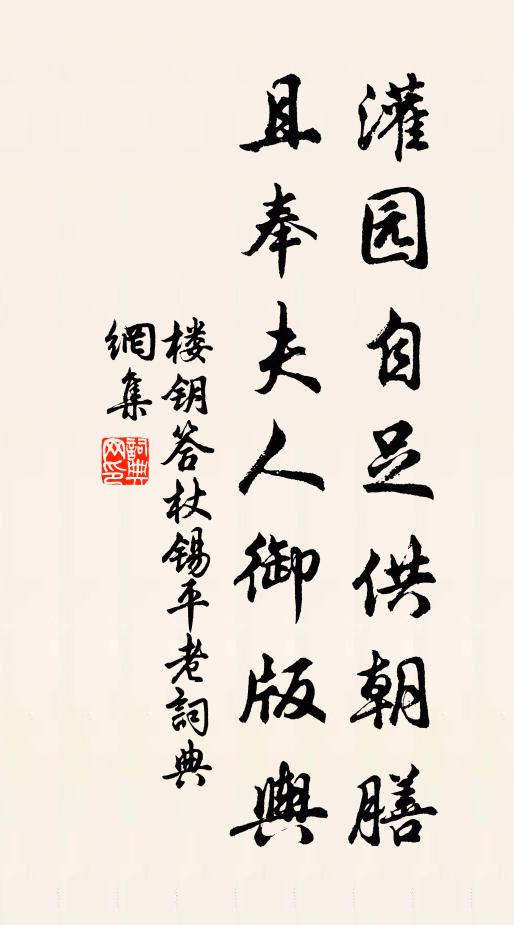 灌园自足供朝膳
且奉夫人御版輿
楼钥答杖锡平老詞典
網集
詞典网印